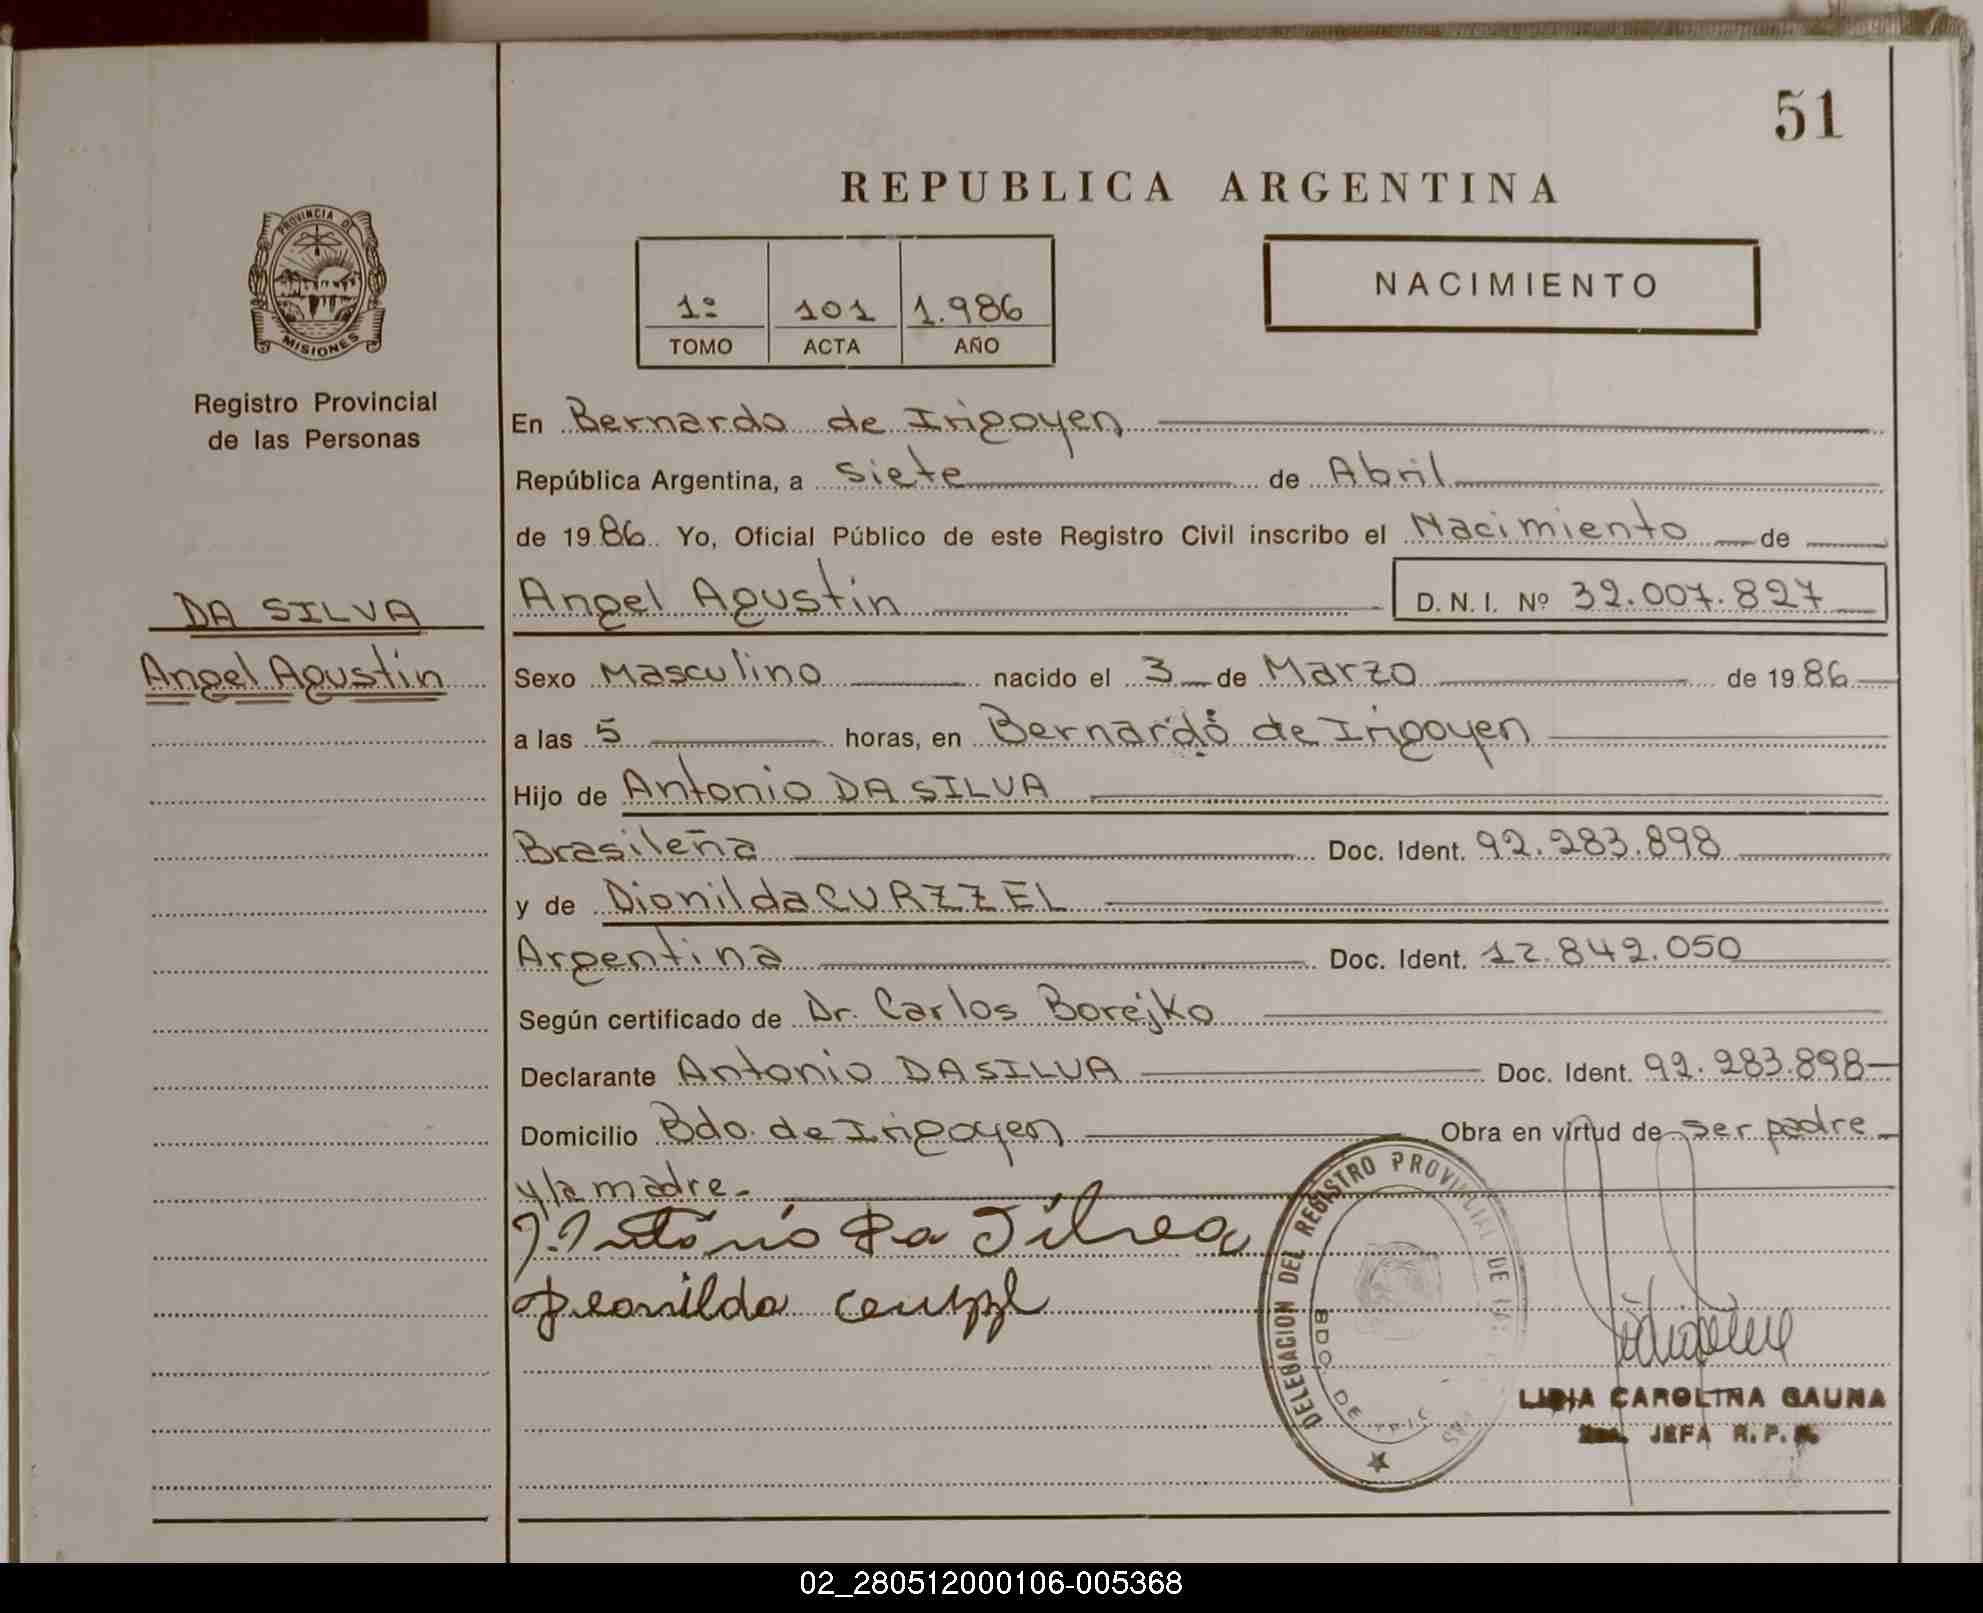 51
REPUBLICA ARGENTINA
PROVINCIA DE
MISIONES
Registro Provincial
de las Personas
1º 101 1.986
TOMO ACTA AÑO
NACIMIENTO
En Bernardo de Irigoyen
República Argentina, a siete de Abril
de 1986 Yo, Oficial Público de este Registro Civil inscribo el Nacimiento de
DA SILVA
Angel Agustin
Angel Agustin D.N.I. Nº 32.007.827
Sexo Masculino nacido el 3 de Marzo de 1986
a las 5 horas, en Bernardo de Irigoyen
Hijo de Antonio DA SILVA
Brasileña Doc. Ident. 92.283.898
y de Dionilda CURZZEL
Argentina Doc. Ident. 12.842.050
Según certificado de Dr. Carlos Borejko
Declarante Antonio DA SILVA Doc. Ident. 92.283.898
Domicilio Bdo. de Irigoyen Obra en virtud de ser padre
y la madre.
Antônio Da Silva
DELEGACION DEL REGISTRO PROVINCIAL DE LAS
BDO. DE IRIG
LIDIA CAROLINA GAUNA
JEFA R.P.P.
02_280512000106-005368